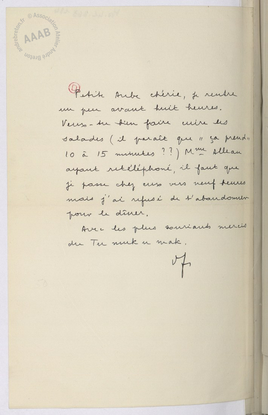 Petite Aube chérie, je rentre
un peu avant huit heures.
Veux-tu bien faire cuire les
salades (il paraît que "ça prend
10 à 15 minutes ??) Mme Elleau
ayant retéléphoné, il faut que
je passe chez eux vers neuf heures
mais j'ai refusé de t'abandonner
pour le dîner.
Avec les plus souriants mercis
du Tu
AAAB